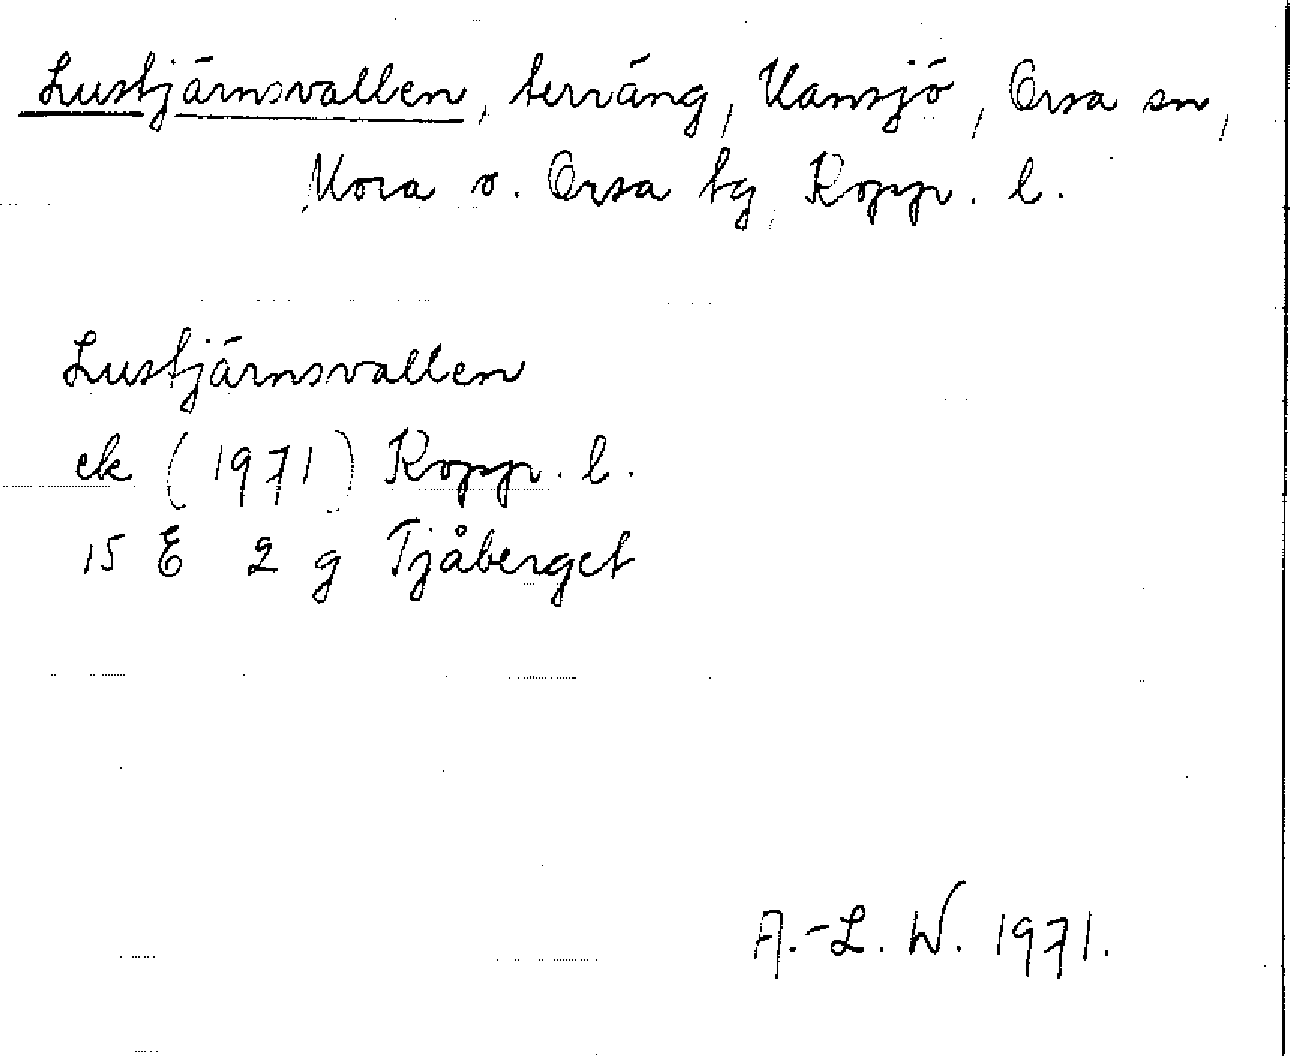 Lustjärnsvallen, terräng, Hansjö, Orsa sn,
Mora o. Orsa tg, Kopp. l.
Lustjärnsvallen
ek (1971) Kopp. l.
15 E 2 g Tjåberget
A.-L. W. 1971.